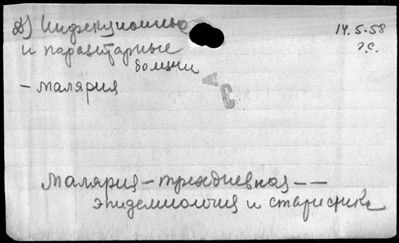 д) Инфекционные
14.5.58
и паразитарные
болезни
- малярия
Малярия - трехдневная --
эпидемиология и статистика